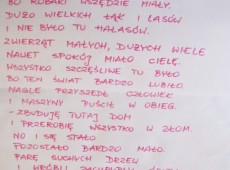 BO ROBAKI WSZĘDZIE MIAŁY.
DUŻO WIELKICH ŁĄK I LASÓW
I NIE BYŁO TU HAŁASÓW.
ZWIERZĄT MAŁYCH, DUŻYCH WIELE
NAWET SPOKÓJ MIAŁO CIELĘ.
WSZYSTKO SZCZĘŚLIWE TU BYŁO
BO TEN ŚWIAT BARDZO LUBIŁO
NAGLE PRZYSZEDŁ CZŁOWIEK
I MASZYNY PUŚCIŁ W OBIEG.
- ZBUDUJĘ TUTAJ DOM
I PRZEROBIĘ WSZYSTKO W ZŁOM.
NO I SIĘ STAŁO
POZOSTAŁO BARDZO MAŁO.
PARĘ SUCHYCH DRZEW
I WRÓBLI